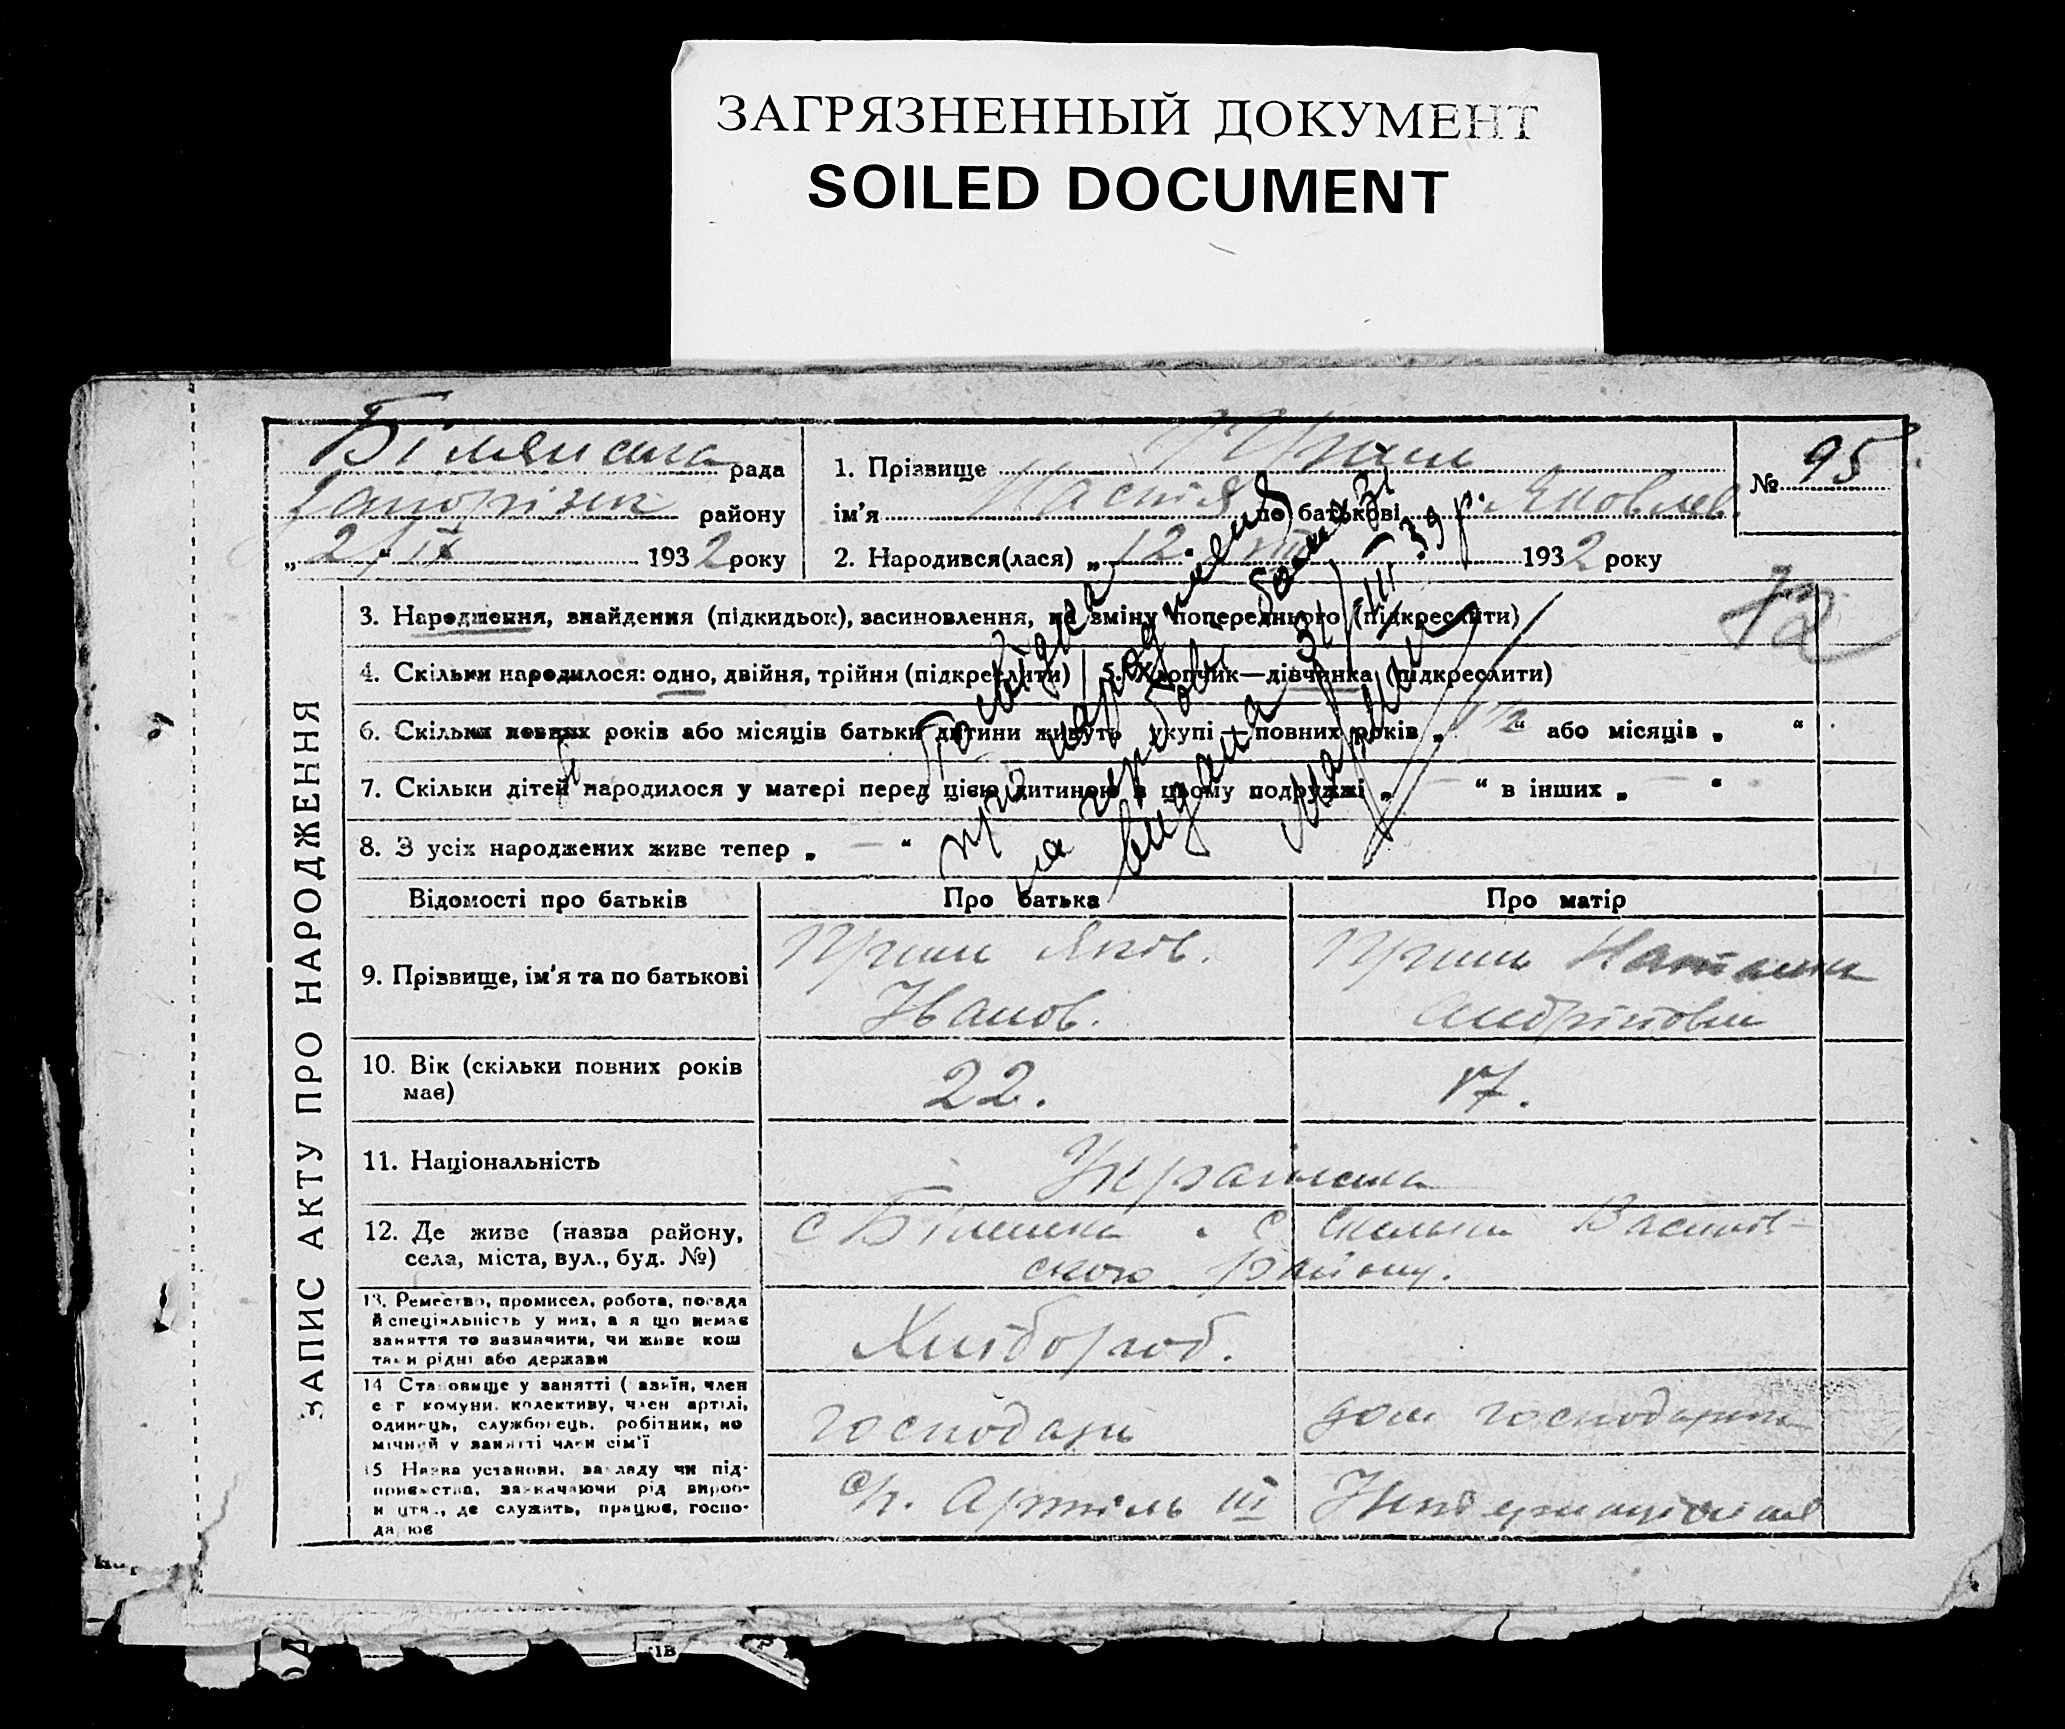 ЗАГРЯЗНЕННЫЙ ДОКУМЕНТ
SOILED DOCUMENT
ЗАПИС АКТУ ПРО НАРОДЖЕННЯ
рада
району
„ 2 “ IX 1932 року
1. Прізвище
ім'я Настя по батькові Яковлев.
2. Народився(лася) „ 12 “ VIII 1932 року
№ 95
12
3. Народження, знайдення (підкидьок), засиновлення, на зміну попереднього (підкреслити)
4. Скільки народилося: одно, двійня, трійня (підкреслити)
5. Хлопчик—дівчинка (підкреслити)
6. Скільки повних років або місяців батьки дитини живуть укупі — повних років „ 1½ “ або місяців „ “
7. Скільки дітей народилося у матері перед цією дитиною в цьому подружжі „ — “ в інших „ — “
8. З усіх народжених живе тепер „ — “
Посвідка
про народження
видана 31/III 39 р.
Відомості про батьків
Про батька
Про матір
9. Прізвище, ім'я та по батькові
Яков.
Іванов.
Наталки
Андріївни
10. Вік (скільки повних років
має)
22.
17.
11. Національність
Українська
12. Де живе (назва району,
села, міста, вул., буд. №)
с
ського району.
13. Ремество, промисел, робота, посада
й спеціяльність у них, а якщо немає
заняття то визначити, чи живе кош
тами рідні або держави
Хлібороб.
14 Становище у занятті (хазяїн, член
с г комуни, колективу, член артілі,
одинець, службовець, робітник, по
мічний у занятті член сім'ї
господарь
дом господарка
15 Назва установи, закладу чи під-
приємства, зазначаючи рід вироб-
ництва, де служить, працює, госпо-
дарює
с/г. Артіль III Інтернаціонал